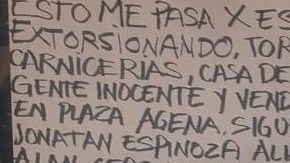 ESTO ME PASA X ES
EXTORSIONANDO, TOR
CARNICERIAS, CASA DE
GENTE INOCENTE Y VEND
EN PLAZA AGENA. SIGU
JONATAN ESPINOZA ALU
ALAN